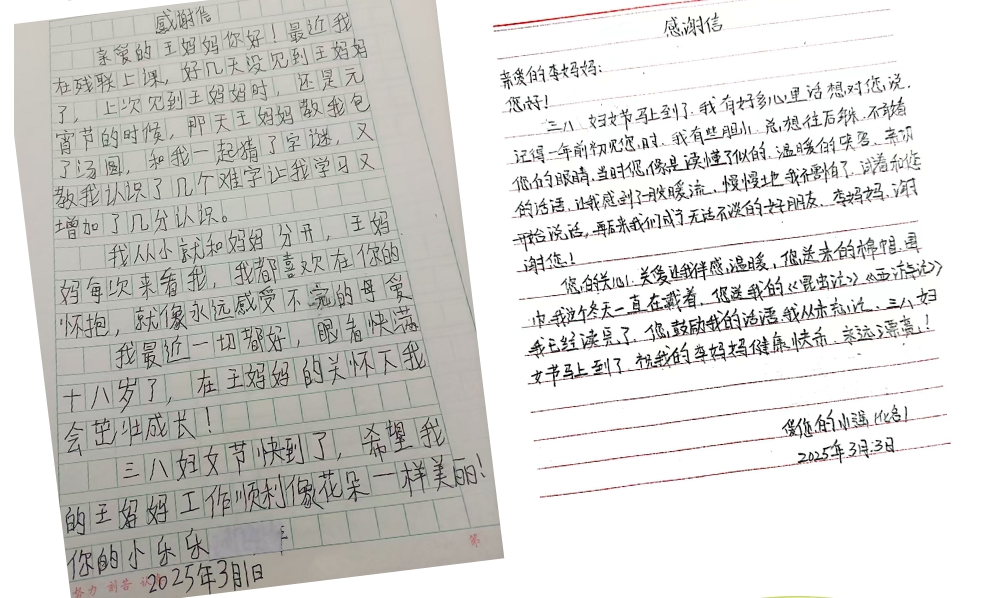 感谢信
亲爱的王妈妈你好！最近我
在残联上课，好几天没见到王妈妈
了，上次见到王妈妈时，还是元
宵节的时候，那天王妈妈教我包
了汤圆，和我一起猜了字谜，又
教我认识了几个难字让我学习又
增加了几分认识。
我从小就和妈妈分开，王妈
妈每次来看我，我都喜欢在你的
怀抱，就像永远感受不完的母爱
我最近一切都好，眼看快满
十八岁了，在王妈妈的关怀下我
会茁壮成长！
三八妇女节快到了，希望我
的王妈妈工作顺利像花朵一样美丽！
你的小乐乐
2025年3月1日
努力 刻苦
第
感谢信
亲爱的李妈妈：
您好！
三八妇女节马上到了，我有好多心里话想对您说，
记得一年前初见您时，我有些胆小，总想往后躲，不敢看
您的眼睛，当时您像是读懂了似的，温暖的笑容，亲切
的话语，让我感到了一股暖流，慢慢地我不害怕了，试着和您
开始说话，再后来我们成了无话不谈的好朋友，李妈妈，谢
谢您！
您的关心、关爱让我倍感温暖，您送来的棉帽、围
巾我这个冬天一直在戴着，您送我的《昆虫记》《西游记》
我已经读完了，您鼓励我的话语我从未忘记、三八妇
女节马上到了，祝我的李妈妈健康快乐，永远漂亮！
您的小
2025年3月3日